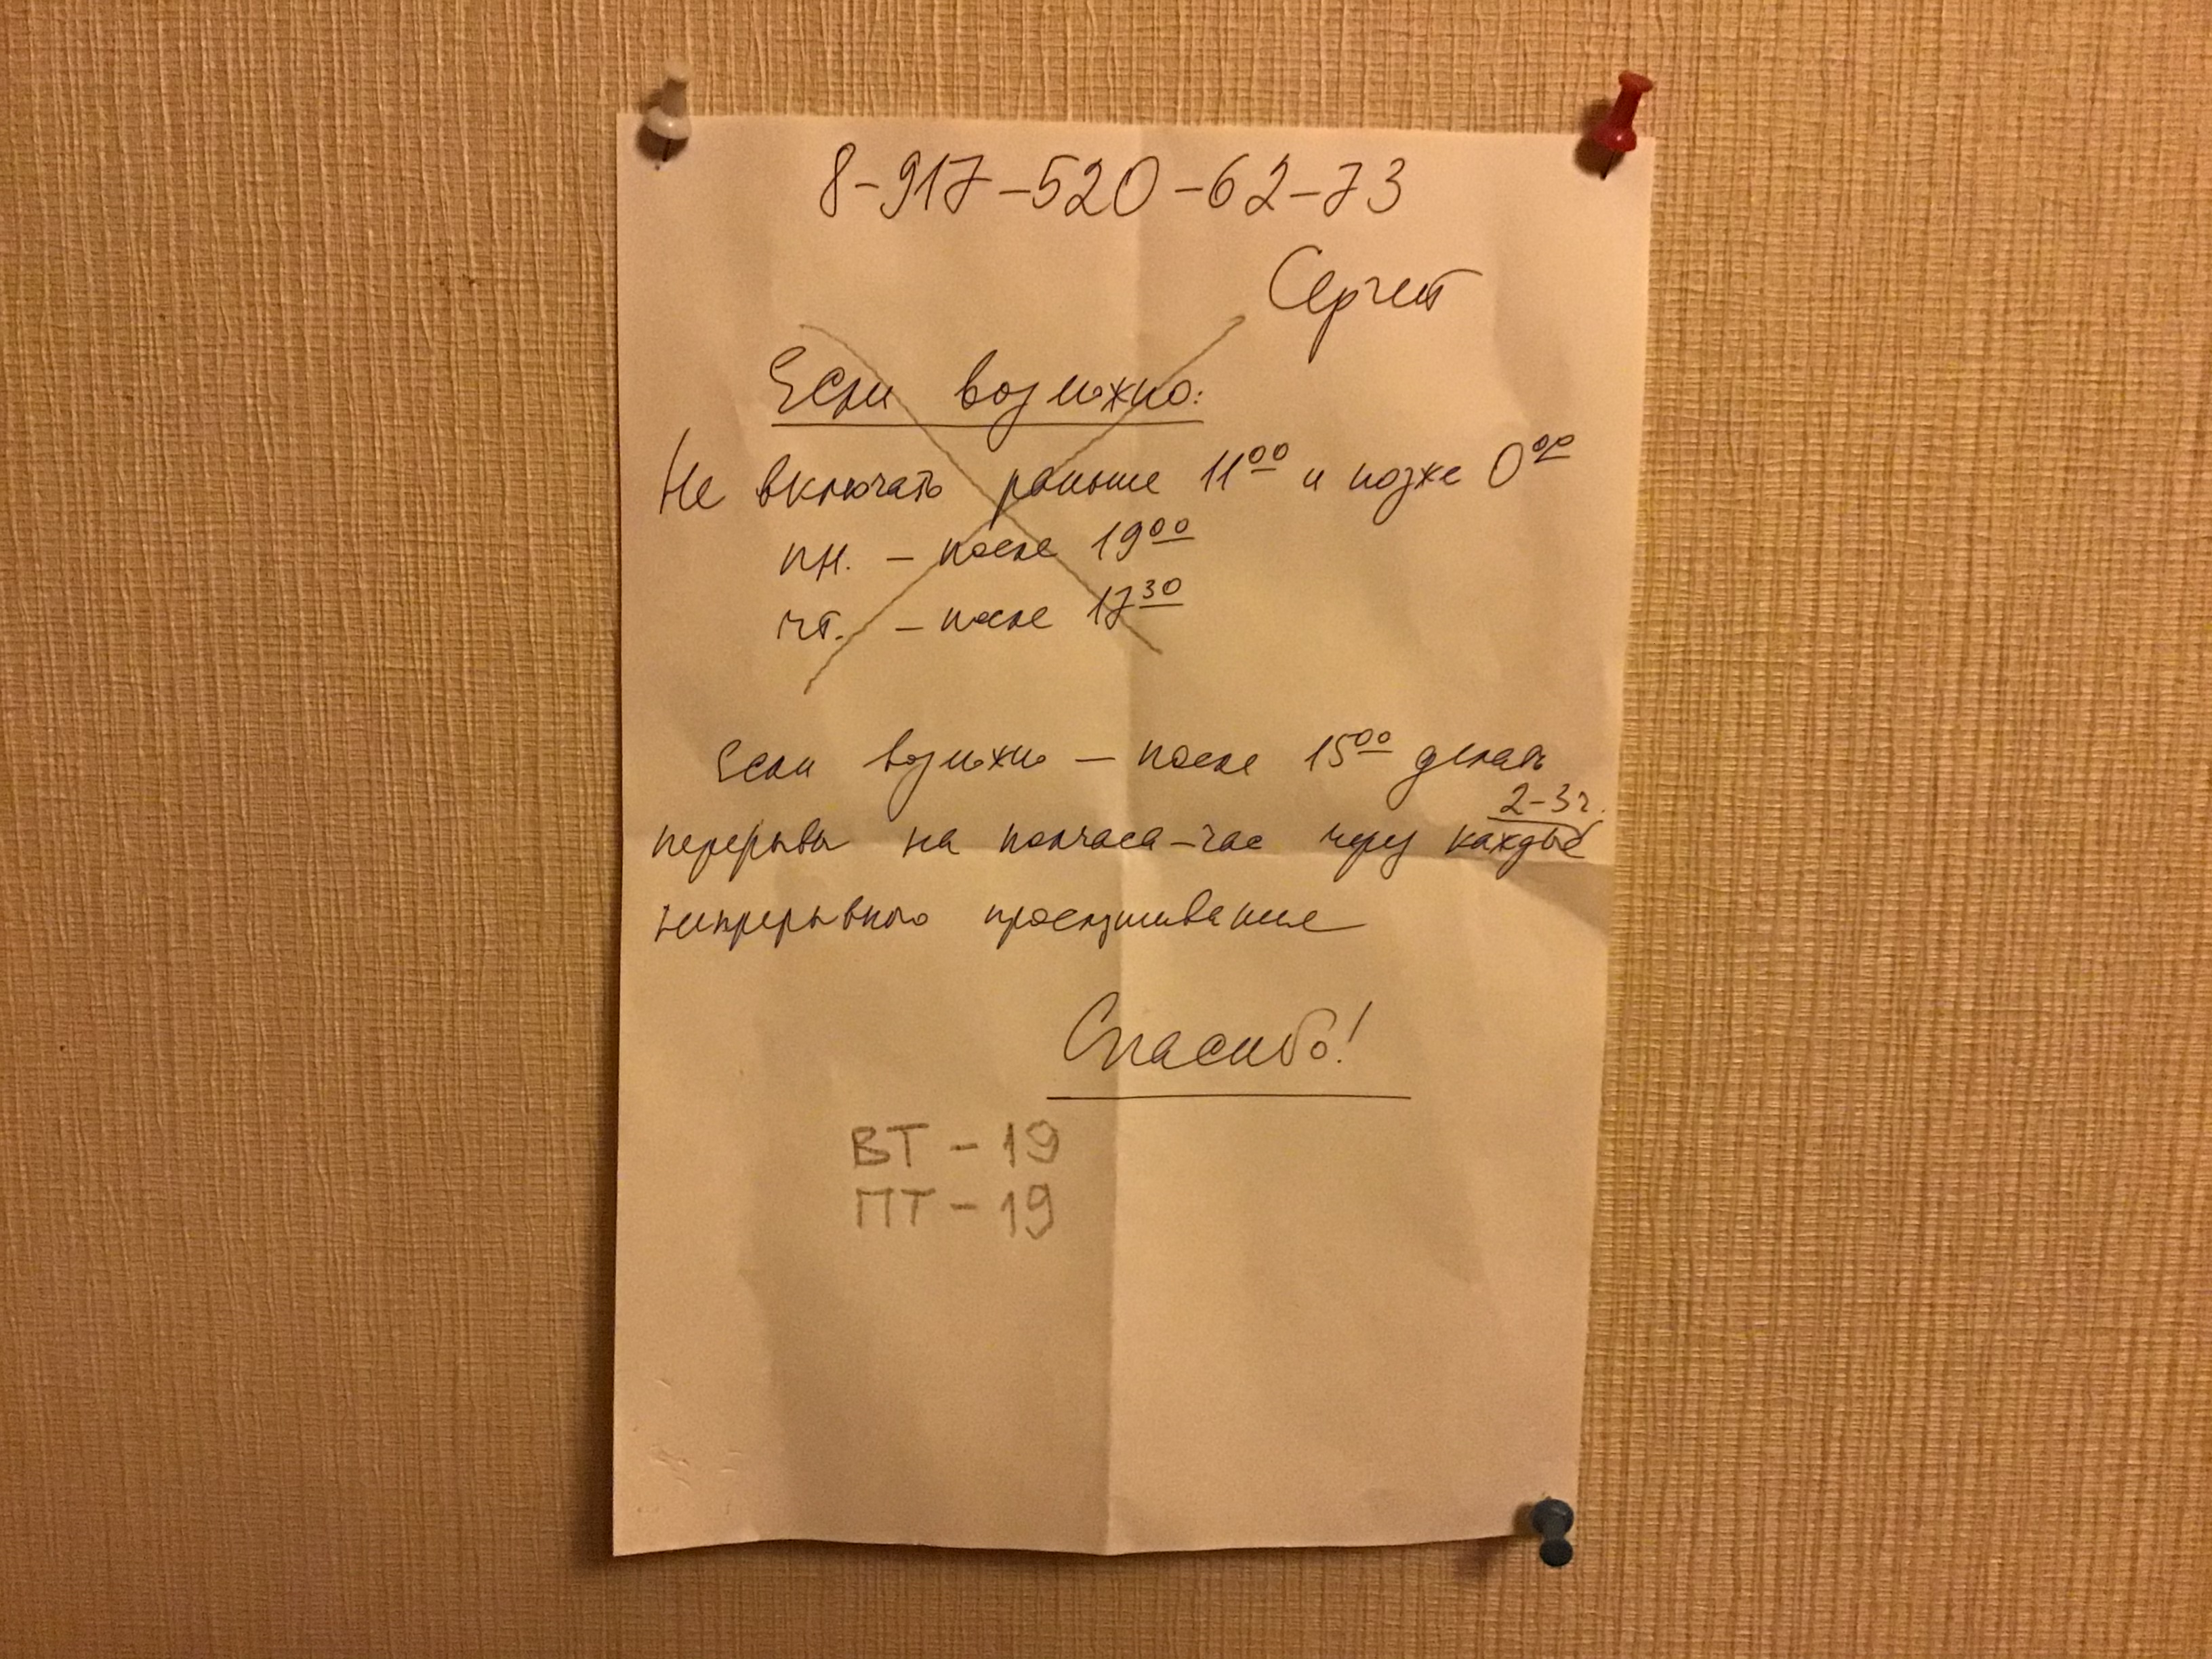 8-917-520-62-73
Сергей
Если возможно:
Не включать раньше 11 00 и позже 0 00
пн. - после 19 00
чт. - после 17 30
Если возможно - после 15 00 делать
2-3 ч.
перерывы на полчаса-час через каждые
непрерывного прослушивания
Спасибо!
ВТ - 19
ПТ - 19